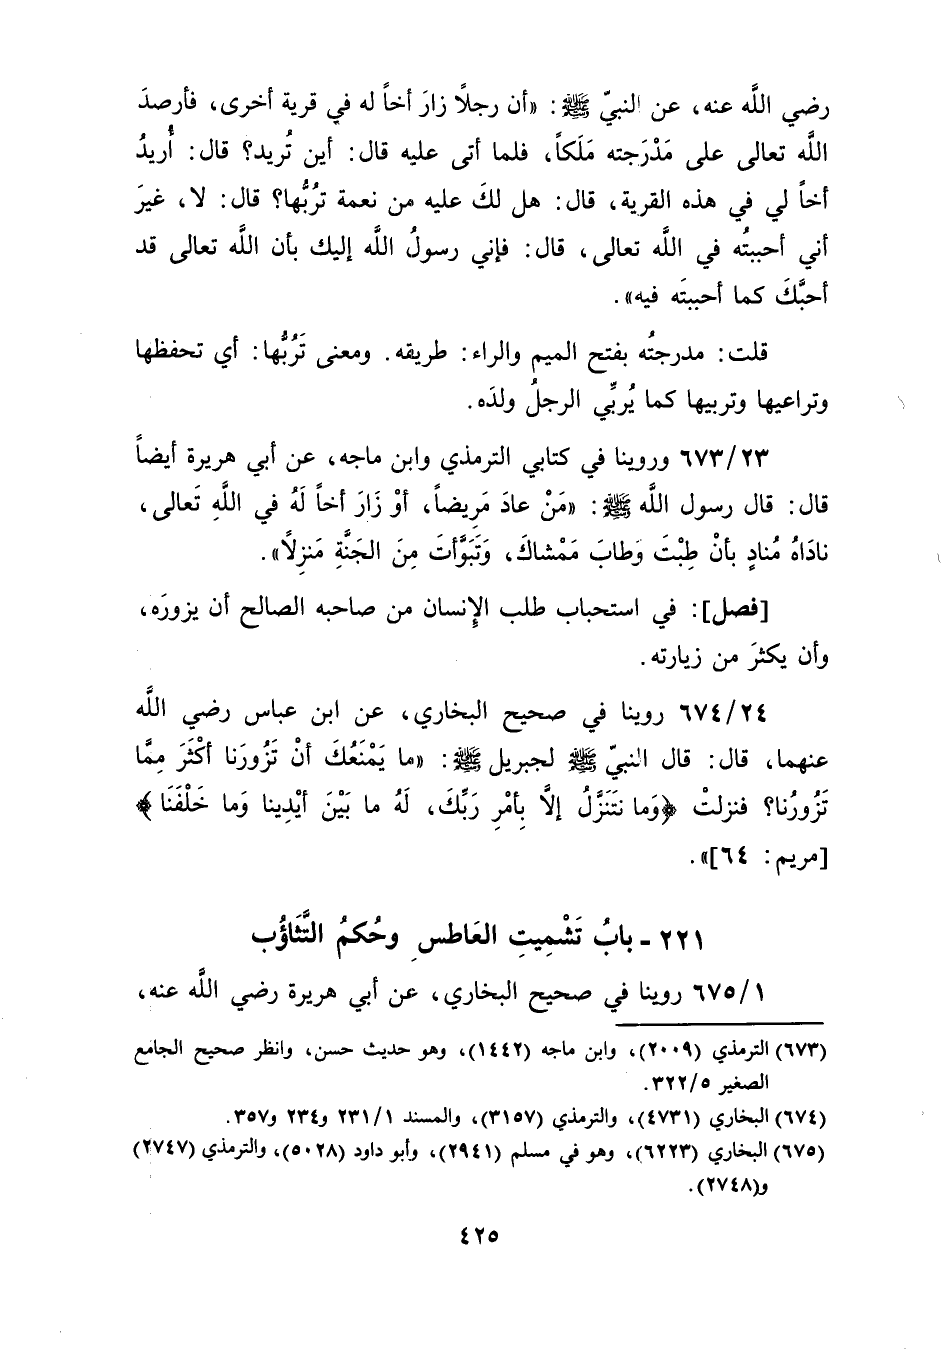 رضي اللَّه عنه، عن النبيّ ﷺ: «أن رجلًا زارَ أخاً له في قرية أخرى، فأرصدَ
اللَّه تعالى على مَدْرَجته مَلَكاً، فلما أتى عليه قال: أين تُريد؟ قال: أُريدُ
أخاً لي في هذه القرية، قال: هل لكَ عليه من نعمة تَرُبُّها؟ قال: لا، غيرَ
أني أحببتُه في اللَّه تعالى، قال: فإني رسولُ اللَّه إليك بأن اللَّه تعالى قد
أحبَّكَ كما أحببتَه فيه».
قلت: مدرجتُه بفتح الميم والراء: طريقه. ومعنى تَرُبُّها: أي تحفظها
وتراعيها وتربيها كما يُربِّي الرجلُ ولدَه.
٦٧٣/٢٣ وروينا في كتابي الترمذي وابن ماجه، عن أبي هريرة أيضاً
قال: قال رسول اللَّه ﷺ: «مَنْ عادَ مَرِيضاً، أوْ زَارَ أخاً لَهُ في اللَّهِ تَعالى،
نادَاهُ مُنادٍ بأنْ طِبْتَ وَطابَ مَمْشاكَ، وَتَبَوَّأتَ مِنَ الجَنَّةِ مَنزِلًا».
[فصل]: في استحباب طلب الإِنسان من صاحبه الصالح أن يزورَه،
وأن يكثرَ من زيارته.
٦٧٤/٢٤ روينا في صحيح البخاري، عن ابن عباس رضي اللَّه
عنهما، قال: قال النبيّ ﷺ لجبريل ﷺ: «ما يَمْنَعُكَ أنْ تَزُورَنا أكْثَرَ مِمَّا
تَزُورُنا؟ فنزلتْ ﴿وَما نَتَنَزَّلُ إلاَّ بِأمْرِ رَبِّكَ، لَهُ ما بَيْنَ أيْدِينا وَما خَلْفَنَا﴾
[مريم: ٦٤]».
٢٢١ - بابُ تَشْمِيتِ العَاطسِ وحُكمُ التَّثَاؤُب
٦٧٥/١ روينا في صحيح البخاري، عن أبي هريرة رضي اللَّه عنه،
(٦٧٣) الترمذي (٢٠٠٩)، وابن ماجه (١٤٤٢)، وهو حديث حسن، وانظر صحيح الجامع
الصغير ٣٢٢/٥.
(٦٧٤) البخاري (٤٧٣١)، والترمذي (٣١٥٧)، والمسند ٢٣١/١ و٢٣٤ و٣٥٧.
(٦٧٥) البخاري (٦٢٢٣)، وهو في مسلم (٢٩٤١)، وأبو داود (٥٠٢٨)، والترمذي (٢٧٤٧)
و(٢٧٤٨).
٤٢٥